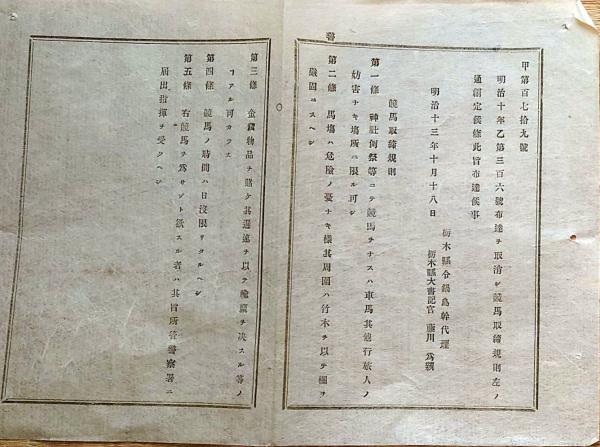 甲第百七拾九號
明治十年乙第三百六號布達ヲ取消シ競馬取締規則左ノ
通創定候條此旨布達候事
明治十三年十月十八日
栃木縣令鍋島幹代理
栃木縣大書記官 藤川爲親
競馬取締規則
第一條 神社例祭等ニテ競馬ヲナスハ車馬其他行旅人ノ
妨害ナキ塲所ニ限ル可シ
第二條 馬塲ハ危險ノ憂ナキ樣其周圍ハ竹木ヲ以テ柵ヲ
嚴固ニスヘシ
警
第三條 金錢物品ヲ賭ケ其遲速ヲ以テ輸贏ヲ决スル等ノ
ヿアル可カラス
第四條 競馬ノ時間ハ日沒限リタルヘシ
第五條 右競馬ヲ爲サント欲スル者ハ其旨所管警察署ニ
屆出指揮ヲ受クヘシ